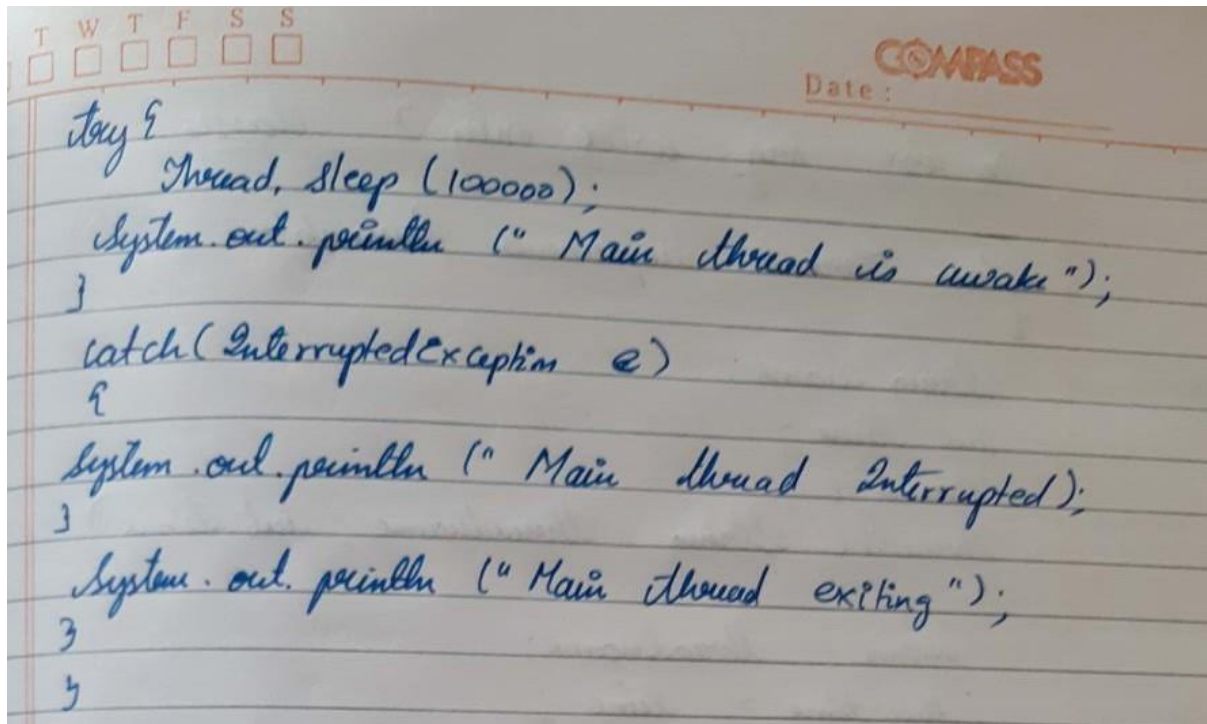 T W T F S S
COMPASS
Date :
try {
Thread, sleep (100000);
System.out.println (" Main thread is awake");
}
catch( InterruptedException e)
{
System.out.println (" Main thread Interrupted);
}
System.out.println (" Main thread exiting");
}
}